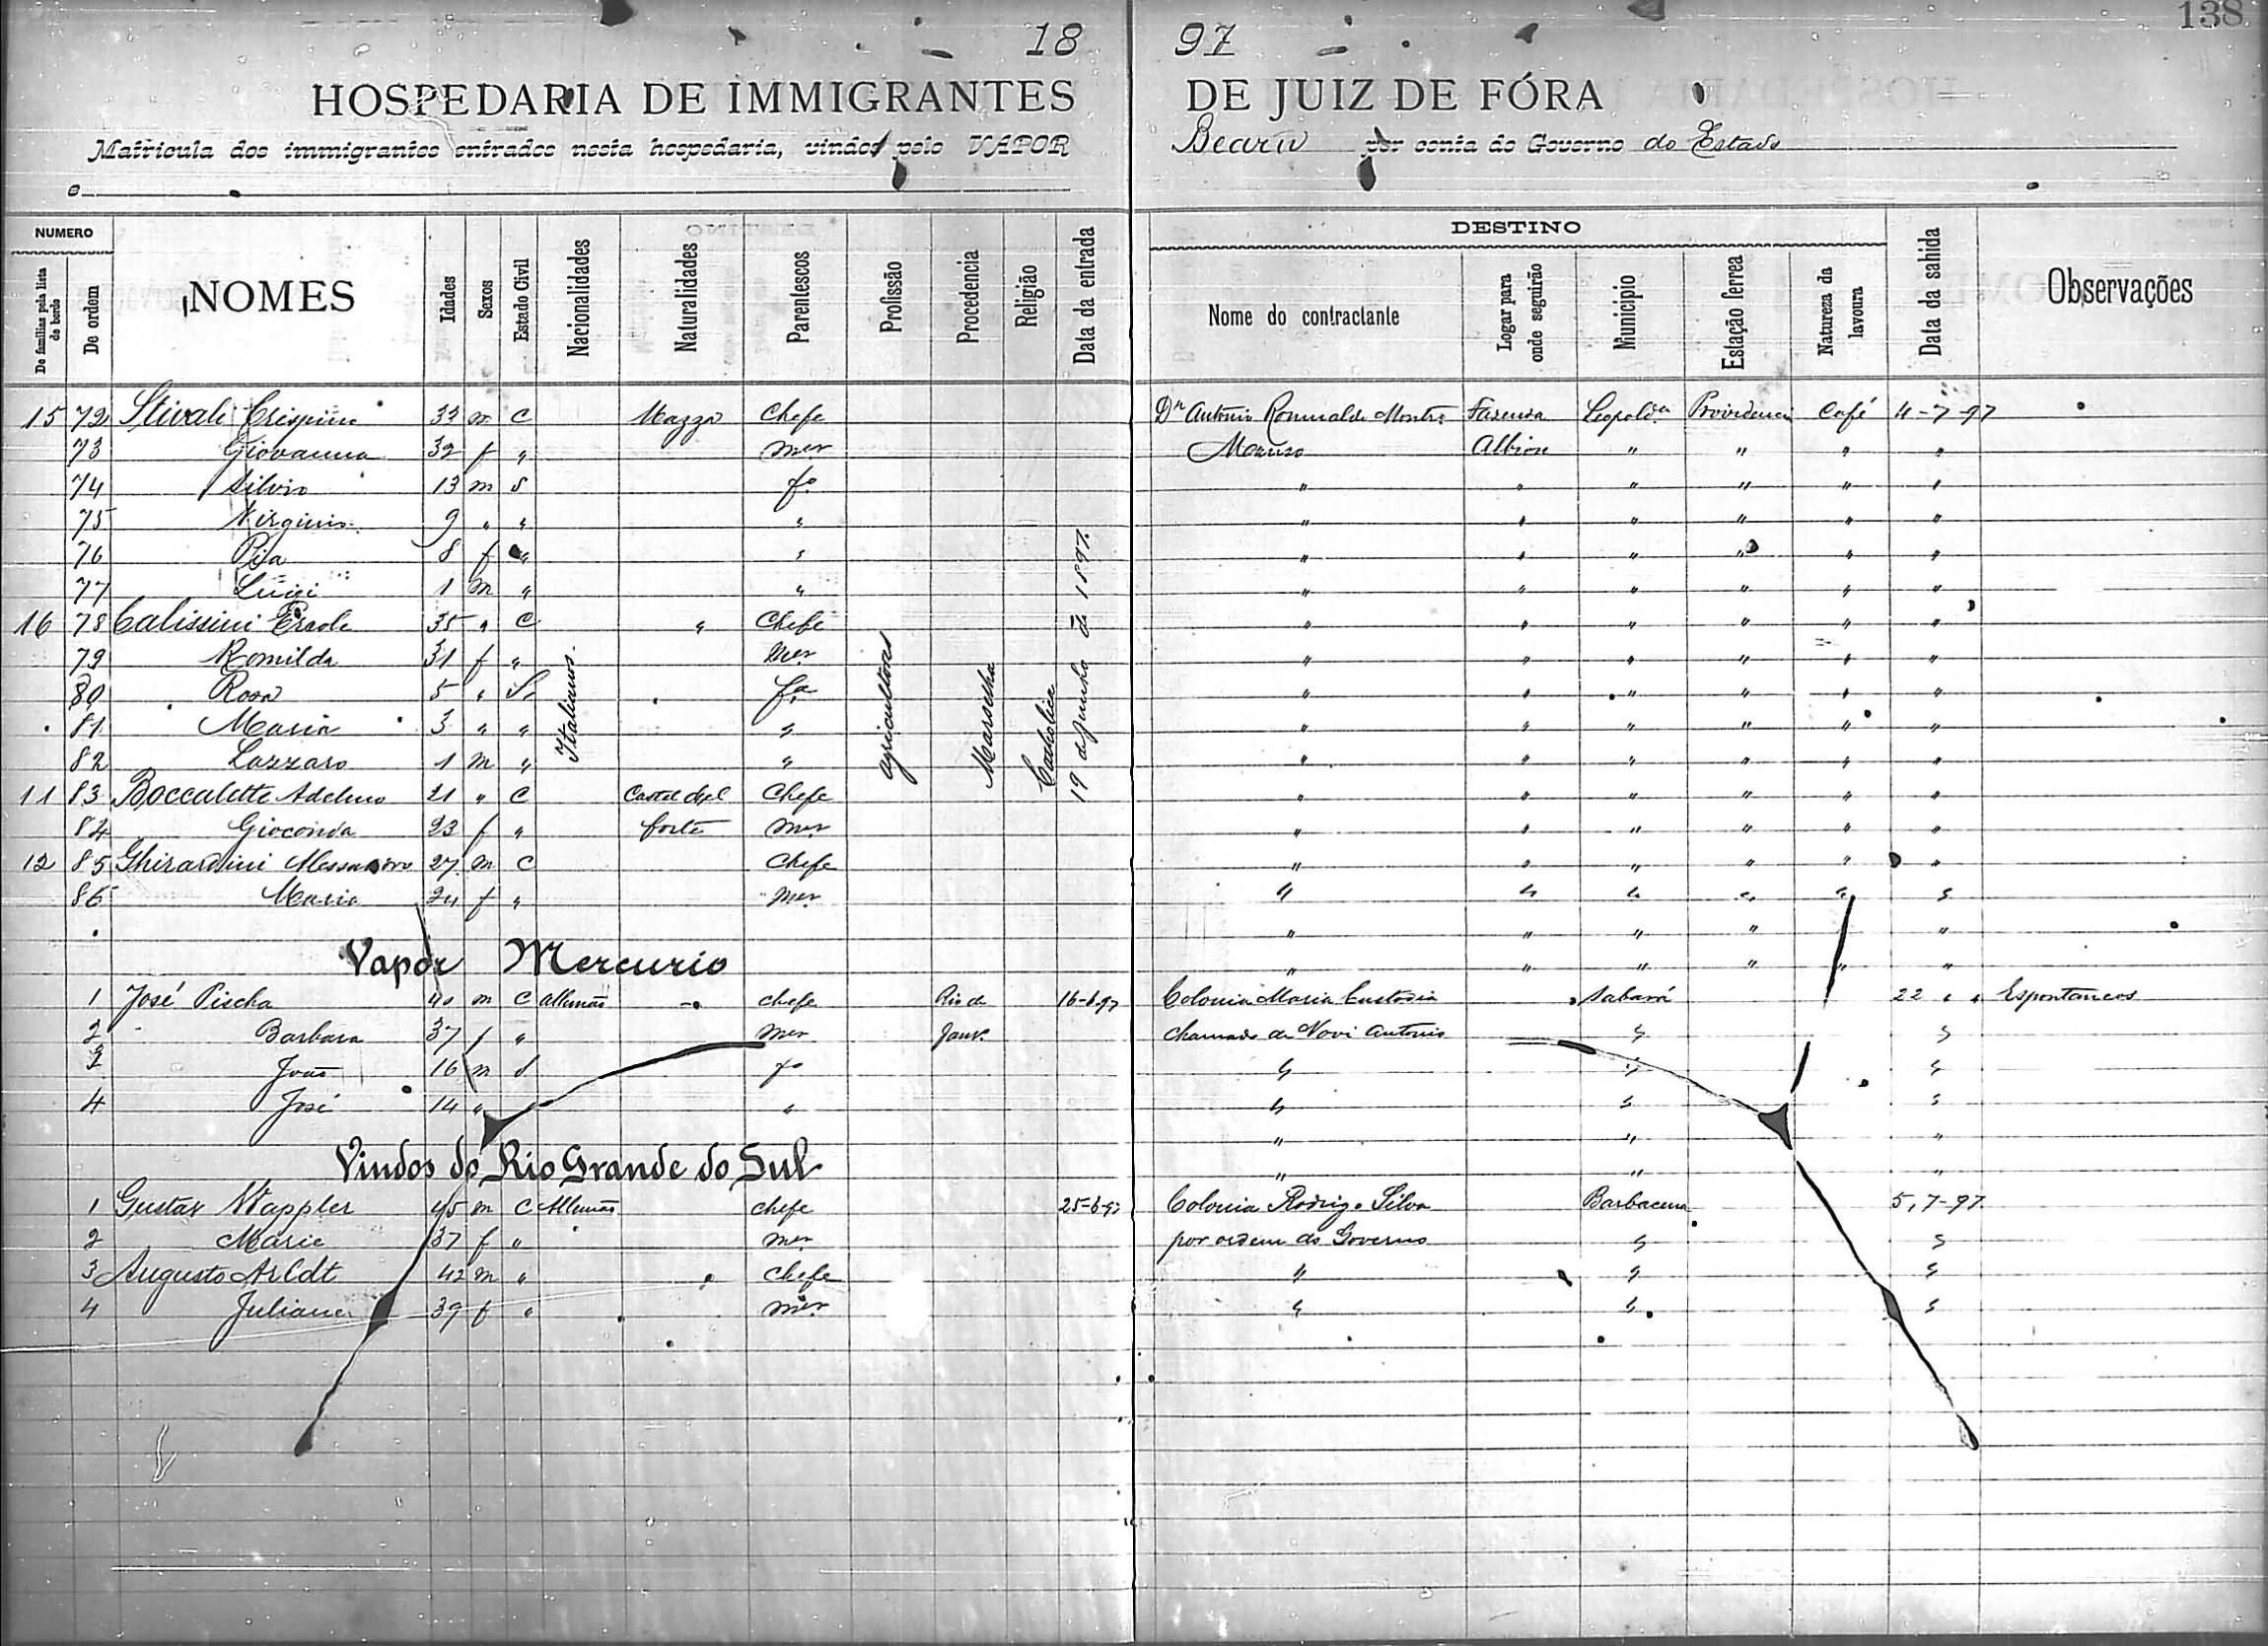 138
18 97
HOSPEDARIA DE IMMIGRANTES DE JUIZ DE FÓRA
Matricula dos immigrantes entrados nesta hospedaria, vindos pelo VAPOR Bearn por conta do Governo do Estado
e
NUMERO
De familias pela lista de bordo
De ordem
NOMES
Idades
Sexos
Estado Civil
Nacionalidades
Naturalidades
Parentescos
Profissão
Procedencia
Religião
Data da entrada
DESTINO
Nome do contractante
Logar para onde seguirão
Municipio
Estação ferrea
Natureza da lavoura
Data da sahida
Observações
15 72 Stivali Crispino 33 m C Mazza Chefe Dr Antonio Romualdo Montro Fazenda Leopolda Providencia Café 4-7-97
73 Giovanna 32 f " mer Albion " " " "
74 Silvio 13 m S fo " " " " " "
75 Virginio 9 " " " " " " " " "
76 Pia 8 f " " " " " " " "
77 Luigi 1 m " " " " " " " "
16 78 Calissini Ercole 35 " C " Chefe " " " " " "
79 Romilda 31 f " mer " " " " " "
80 Rosa 5 " S fa " " " " " "
81 Maria 3 " " " " " " " " "
82 Lazzaro 1 m " " " " " " " "
Italianos
agricultores
Marselha
Catholica
19 de Junho de 1897
11 83 Boccalette Adelino 21 " C Castel del Chefe " " " " " "
84 Gioconda 23 f " forte mer " " " " " "
12 85 Ghirardini Alessandro 27 m C Chefe " " " " " "
86 Maria 24 f " mer " " " " " "
" " " " "
Vapor Mercurio " " " " " "
1 José Pischa 40 m C allemão chefe Rio de 16-6-97 Colonia Maria Custodia Sabará 22 " " Espontaneos
2 Barbara 37 f " mer Janr. chamado de Novi Antonio " "
3 João 16 m S fo " " "
4 José 14 " " " " "
" " "
Vindos do Rio Grande do Sul " " "
1 Gustav Wappler 45 m C Allemão chefe 25-6-97 Colonia Rodrigo Silva Barbacena 5, 7-97
2 Marie 37 f " " mer por ordem do Governo " "
3 Augusto Arldt 42 m " Chefe " " "
4 Juliane 39 f " mer " " "